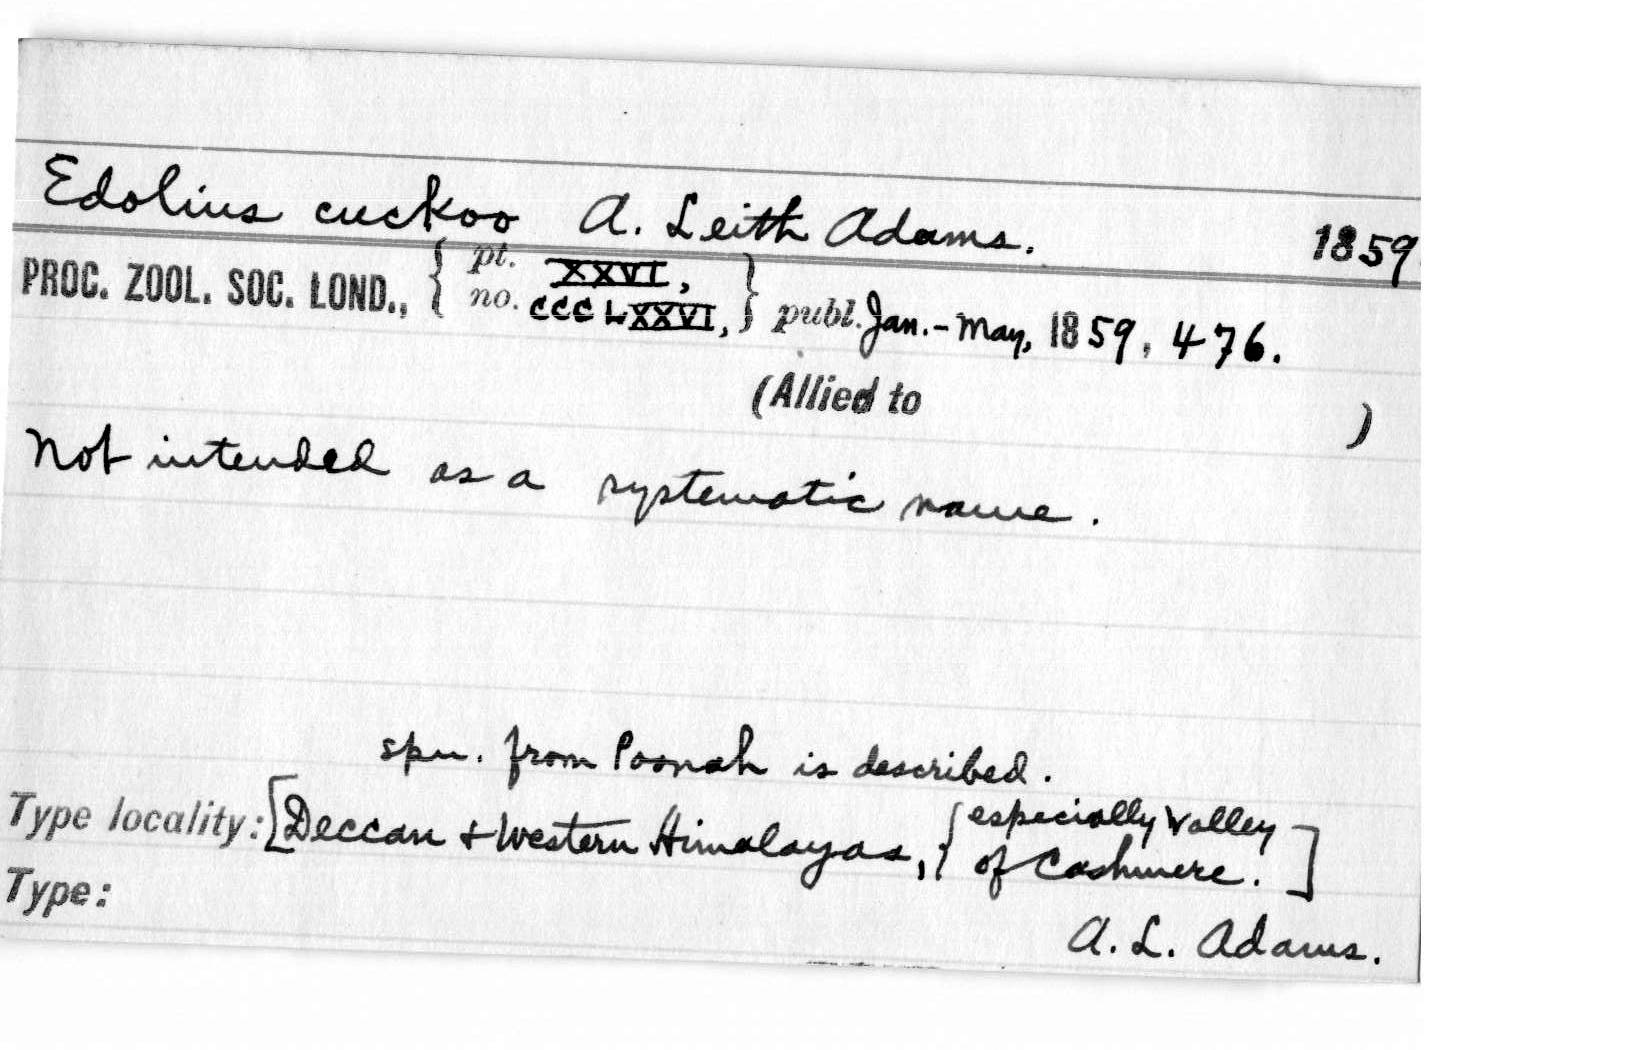 Edolius cuckoo A. Leith Adams. 1859
PROC. ZOOL. SOC. LOND., { pt. XXVI, no. CCCLXXVI, } publ. Jan.-May, 1859, 476.
(Allied to )
Not intended as a systematic name.
spn. from Poonah is described.
Type locality: [Deccan + Western Himalayas, { especially Valley of Cashmere. ]
Type:
A. L. Adams.